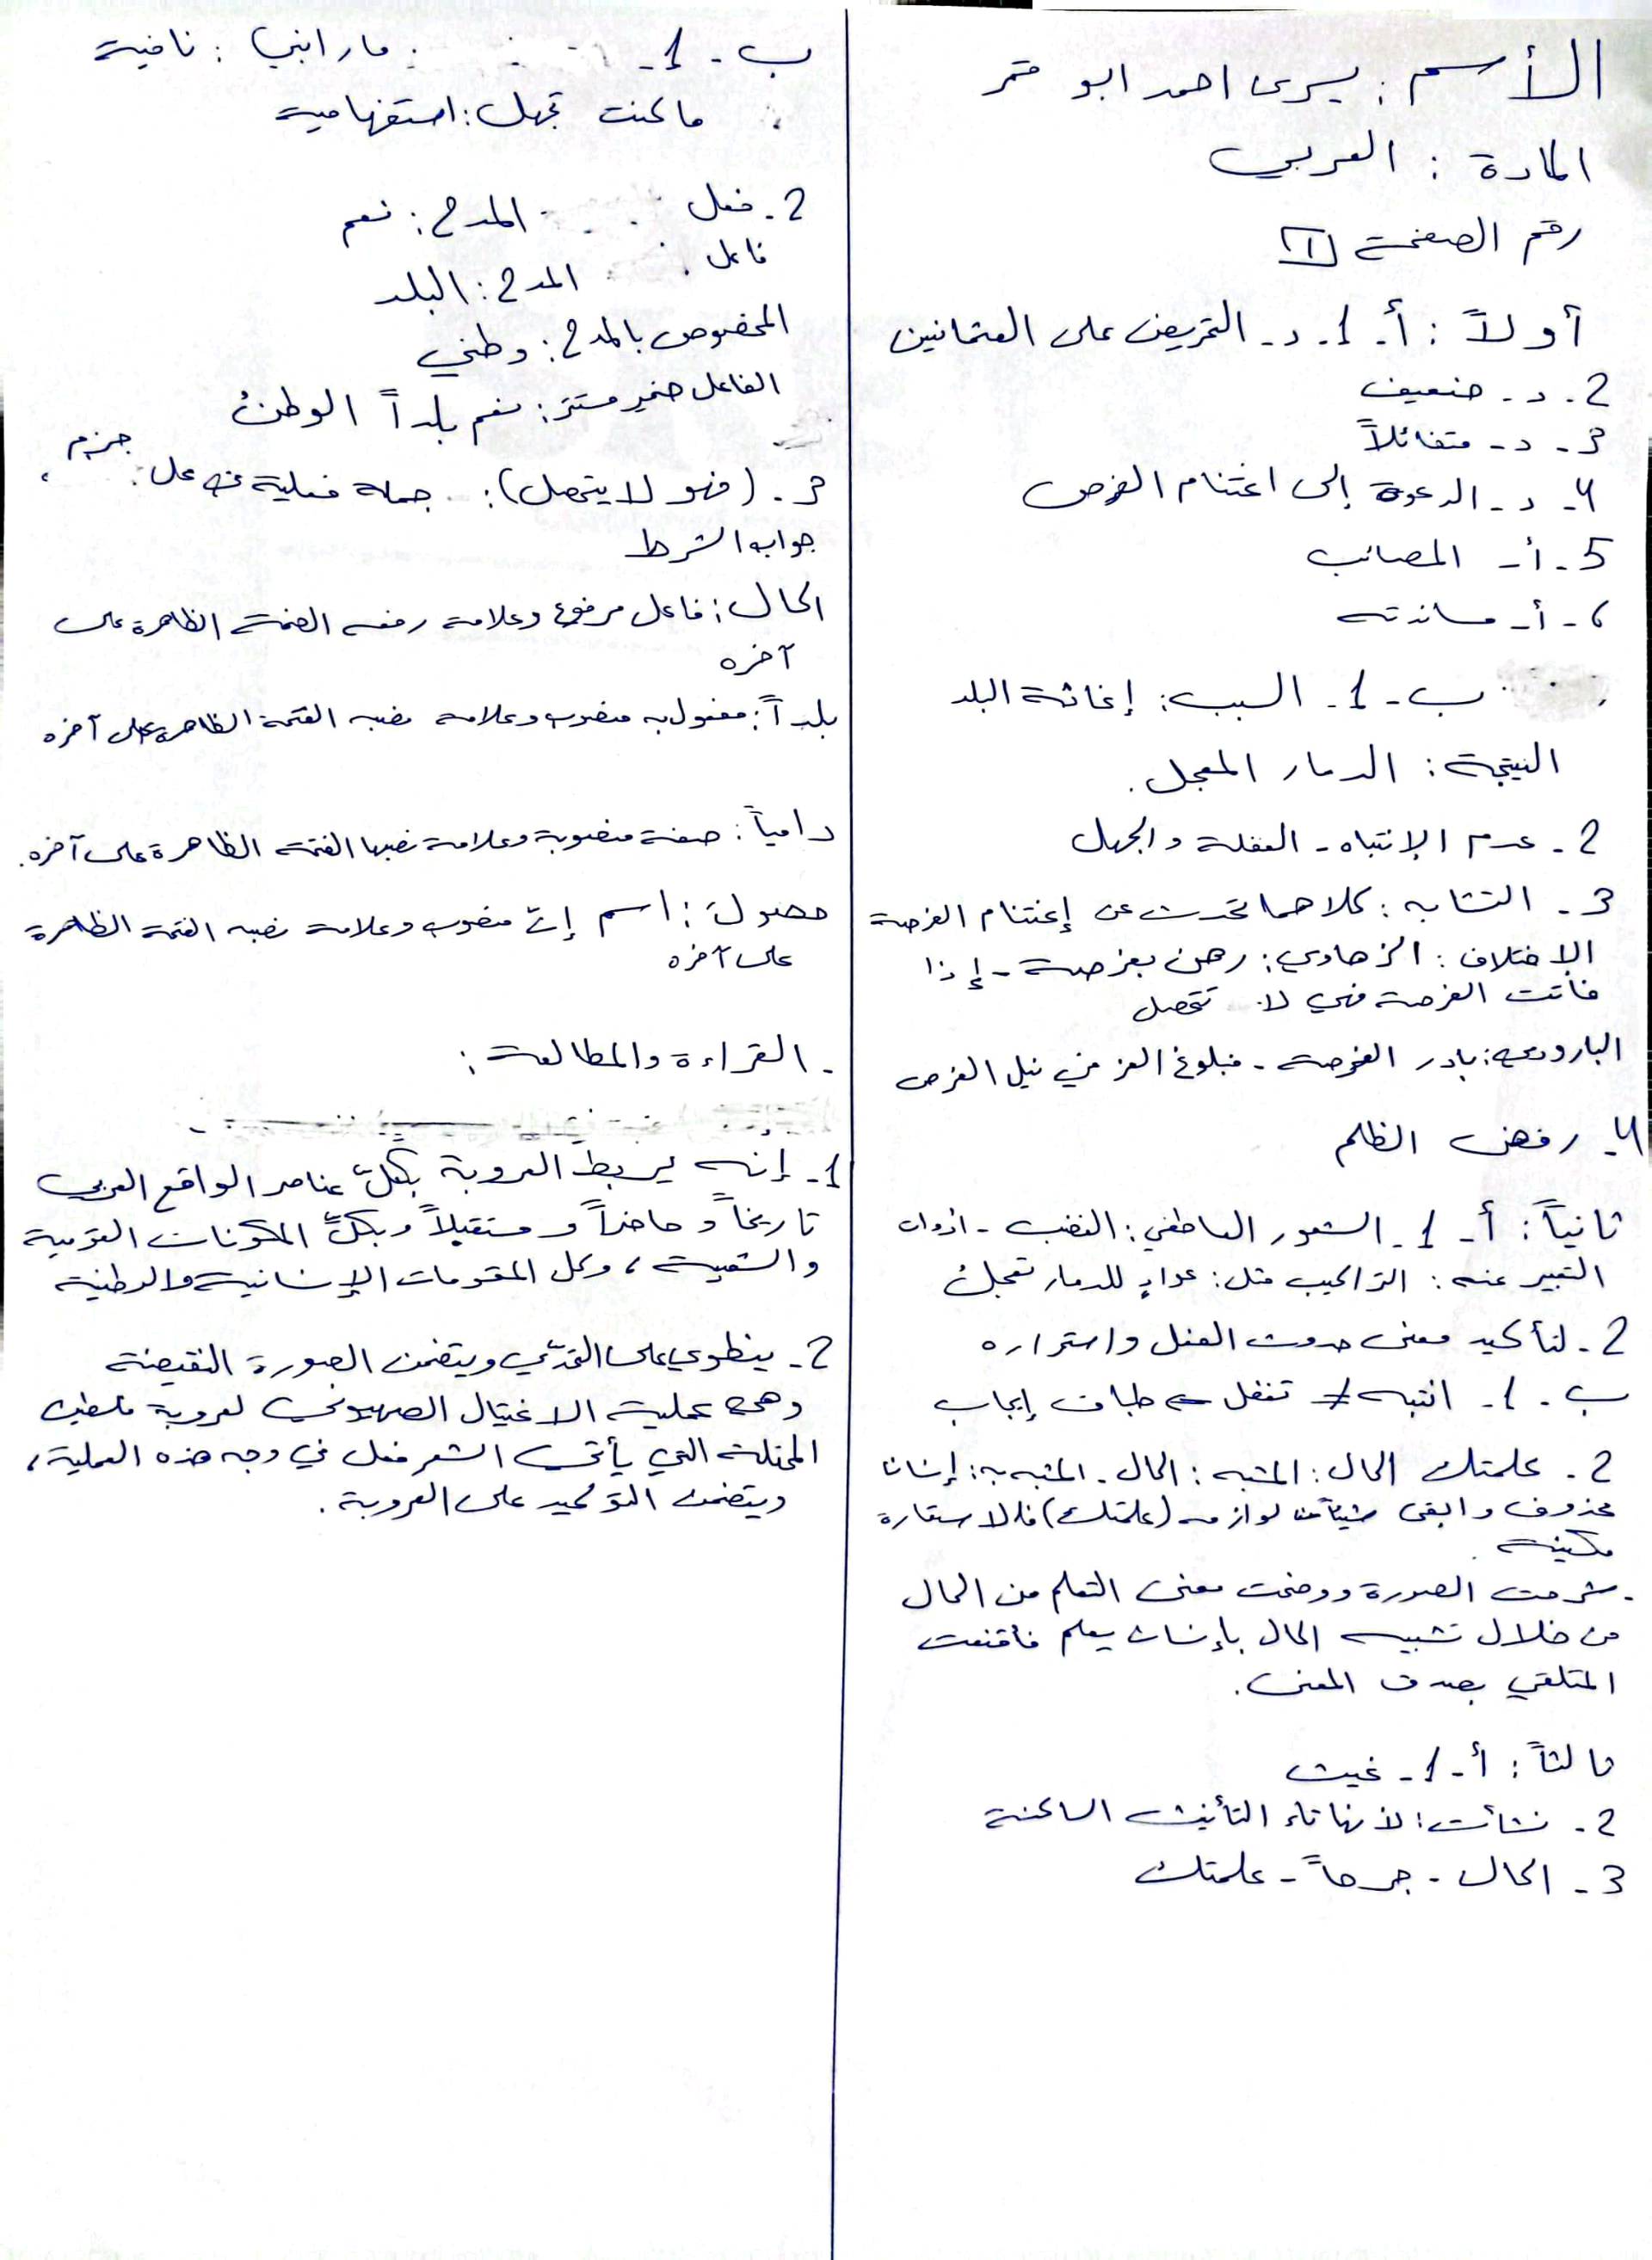 الأسم : يسرى احمد ابو
المادة : العربي
رقم الصفحة 1
أولاً : أ. 1. د. التحريض على العثمانين
2. د. ضعيف
3. د- متفائلاً
4. د- الدعوة إلى اغتنام الفرص
5. أ- المصائب
6. أ- مساندته
ب- 1- السبب: إغاثة البلد
النتيجة : الدمار المعجل.
2- عدم الإنتباه- الغفلة والجهل
3- التشابه : كلاهما تحدث عن إغتنام الفرصة
الاختلاف : الزهاوي: رهن بفرصة- إذا
فاتت الفرصة فهي لا تتحصل
البارودي: بادر الفرصة- فبلوغ العز في نيل الفرص
4- رفض الظلم
ثانياً : أ- 1- الشعور العاطفي: الغضب- ادوات
التعبير عنه : التراكيب مثل: عوادٍ للدمار تعجلُ
2- لتأكيد معنى حدوث الفعل واستمراره
ب. 1- انتبه ≠ تغفل ← طباق إيجاب
2. علمتك الحال: المشبه : الحال. المشبه به: إنسان
محذوف وابقى شيئاً من لوازمه (علمتك) فالاستعارة
مكنية
. شرحت الصورة ووضحت معنى التعلم من الحال
من خلال تشبيه الحال بإنسان يعلم فأقنعت
المتلقي بصدق المعنى.
ثالثاً : أ- 1- غيث
2. نشأت: لأنها تاء التأنيث الساكنة
3- الحال- جرحاً- علمتك
ب- 1- ما رابني : نافية
ما كنت تجهل: استفهامية
2. فعل المدح: نعم
فاعل المدح: البلد
المخصوص بالمدح: وطني
الفاعل ضمير مستتر: نعم بلداً الوطنُ
3. (فهو لا يتحصل): جملة فعلية في محل جزم
جواب الشرط
الحال: فاعل مرفوع وعلامة رفعه الضمة الظاهرة على
آخره
بلداً: مفعول به منصوب وعلامة نصبه الفتحة الظاهرة على آخره
دامياً: صفة منصوبة وعلامة نصبها الفتحة الظاهرة على آخره.
حصولَ: اسم إنّ منصوب وعلامة نصبه الفتحة الظاهرة
على آخره
- القراءة والمطالعة :
1- إنه يربط العروبة بكلّ عناصر الواقع العربي
تاريخاً و حاضراً و مستقبلاً وبكلّ المكونات القومية
والشعبية، وكل المقومات الإنسانية والوطنية
2- ينطوي على التحدّي ويتضمن الصورة النقيضة
وهي عملية الاغتيال الصهيوني لعروبة فلسطين
المحتلة التي يأتي الشعر فعل في وجه هذه العملية،
ويتضمن التوكيد على العروبة.